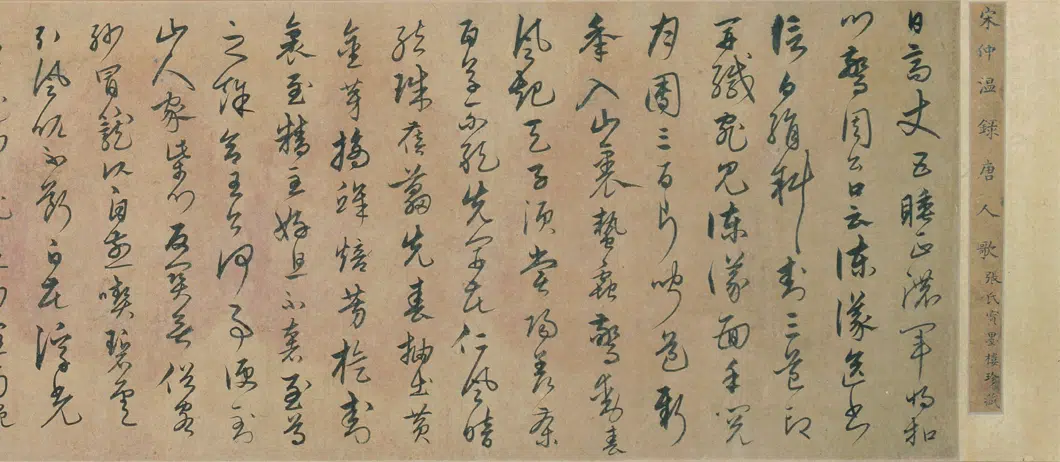 宋仲溫錄唐人歌 張氏墨樓珍藏
日高丈五睡正濃軍將扣
門驚周公口云諫議送書
信白絹斜封三道印
開緘宛見諫議面手閱
月團三百片聞道新
年入山裏蟄蟲驚動春
風起天子須嘗陽羨茶
百草不敢先開花仁風暗
結珠蓓蕾先春抽出黃
金芽摘鮮焙芳旋封
裹至精至好且不奢至尊
之餘合王公何事便到
山人家柴門反關無俗客
紗帽籠頭自煎喫碧雲
引風吹不斷白花浮光